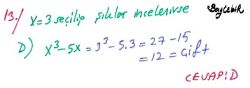 13-/ x=3 seçilip şıklar incelenirse
D) x³-5x = 3³-5.3 = 27-15
=12 = Çift
CEVAP:D